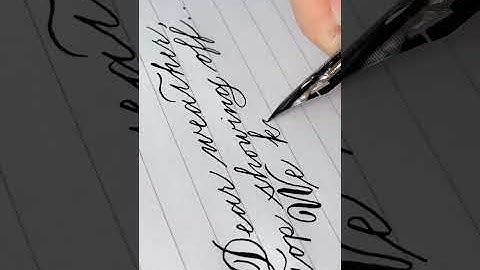 Dear weather,
top showing off.
We k